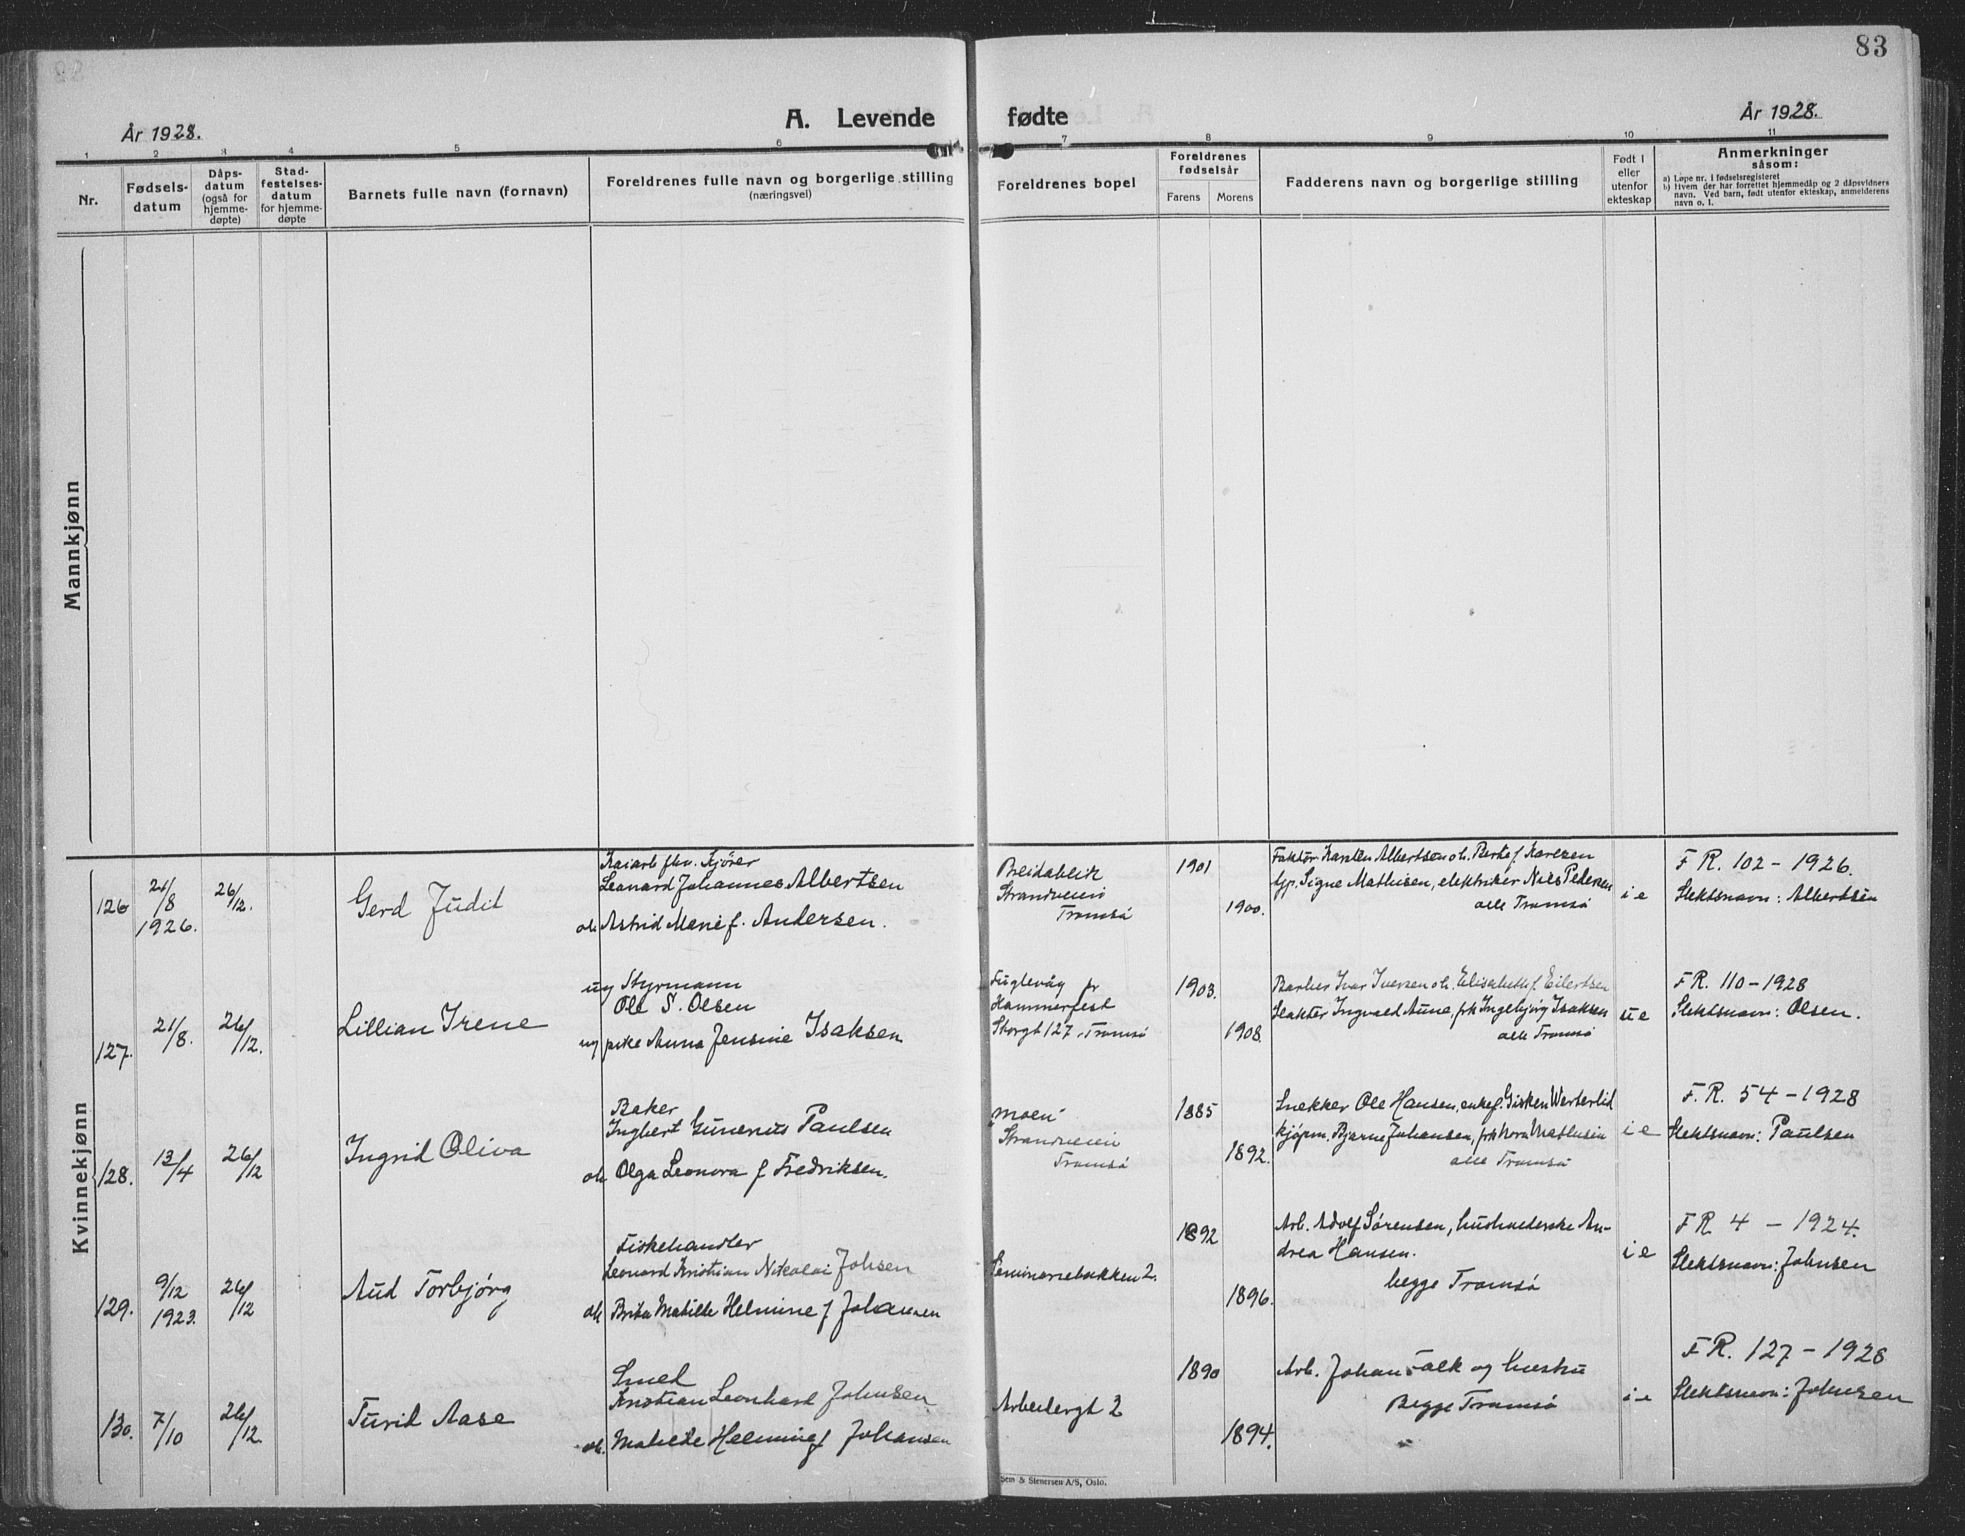 83
A. Levende fødte
År 1928.
År 1928.
1 2 3 4 5 6 7 8 9 10 11
Nr.
Fødsels-
datum
Dåps-
datum
(også for
hjemme-
døpte)
Stad-
festelses-
datum
for hjemme-
døpte
Barnets fulle navn (fornavn)
Foreldrenes fulle navn og borgerlige stilling
(næringsvei)
Foreldrenes bopel
Foreldrenes
fødselsår
Farens Morens
Fadderens navn og borgerlige stilling
Født i
eller
utenfor
ekteskap
Anmerkninger
såsom:
a) Løpe nr. i fødselsregisteret
b) Hvem der har forrettet hjemmedåp og 2 dåpsvidners
navn. Ved barn, født utenfor ekteskap, anmelderens
navn o. l.
Mannkjønn
Kvinnekjønn
126
21/8
1926.
26/12.
Gerd Judit
Kaiarb. fhv. Kjører
Leonard Johannes Albertsen
ok Astrid Marie f. Andersen.
Breidablik
Strandveien
Tromsø
1901
1900.
Faktor Karsten Albertsen o h. Berte f. Karlsen
tjp. Signe Mathisen, elektriker Nils Pedersen
alle Tromsø
i e
F R. 102 - 1926.
Slektsnavn: Albertsen
127.
21/8.
26/12.
Lillian Irene
ug Styrmann
Ole S. Olsen
ug pike Anna Jensine Isaksen
Fuglevåg pr
Hammerfest
Storgt 127, Tromsø
1903.
1908.
Barber Ivar Iversen o h. Elisabeth f. Eilertsen
Slakter Ingvald Aune, frk Ingebjørg Isaksen
alle Tromsø
u e
F R. 110 - 1928
Slektsnavn: Olsen.
128.
13/4
26/12
Ingrid Oliva
Baker
Ingbert Gunerius Paulsen
ok Olga Leonora f Fredriksen.
"Moen"
Strandveien
Tromsø
1885
1892.
Snekker Ole Hansen, enkef. Gisken Westerlid
kjøpm. Bjarne Johansen, frk Nora Mathisen
alle Tromsø
i e
F. R. 54 - 1928
Slektsnavn: Paulsen
129.
9/12
1923.
26/12
Aud Torbjørg
Fiskehandler
Leonard Kristian Nikolai Johsen
ok Brita Matilte Helmine f Johansen
Seminariebakken 2.
1892
1896.
Arb. Adolf Sørensen, husholderske An-
drea Hansen.
begge Tromsø
i e
F R 4 - 1924.
Slektsnavn: Johnsen
130.
7/10
26/12.
Turid Aase
Smed
Kristian Leonhard Johnsen
ok. Matilde Helmine f Johansen
Arbeidergt 2
1890
1894.
Arb. Johan Falk og hustru
Begge Tromsø
i e
F R. 127 - 1928
Slektsnavn: Johnsen
Sem & Stenersen A/S, Oslo.